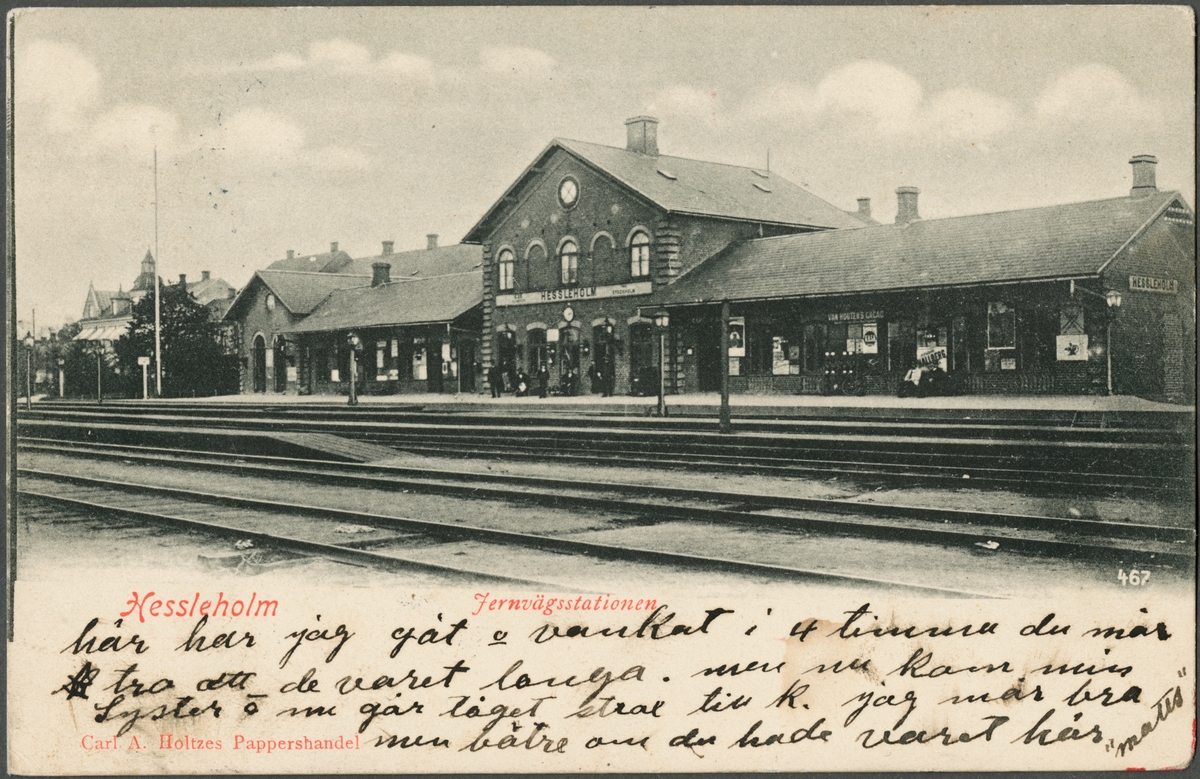 HESSLEHOLM
HESSLEHOLM
VAN HOUTEN'S CACAO
MALLBERG
467
Hessleholm
Jernvägsstationen
här har jag gåt o vankat i 4 timma du mår
tro att de varet longa. men nu kom min
Syster o nu går tåget strax till k. jag mår bra
Carl A. Holtzes Pappershandel
men bätre om du hade varet här
"mates"